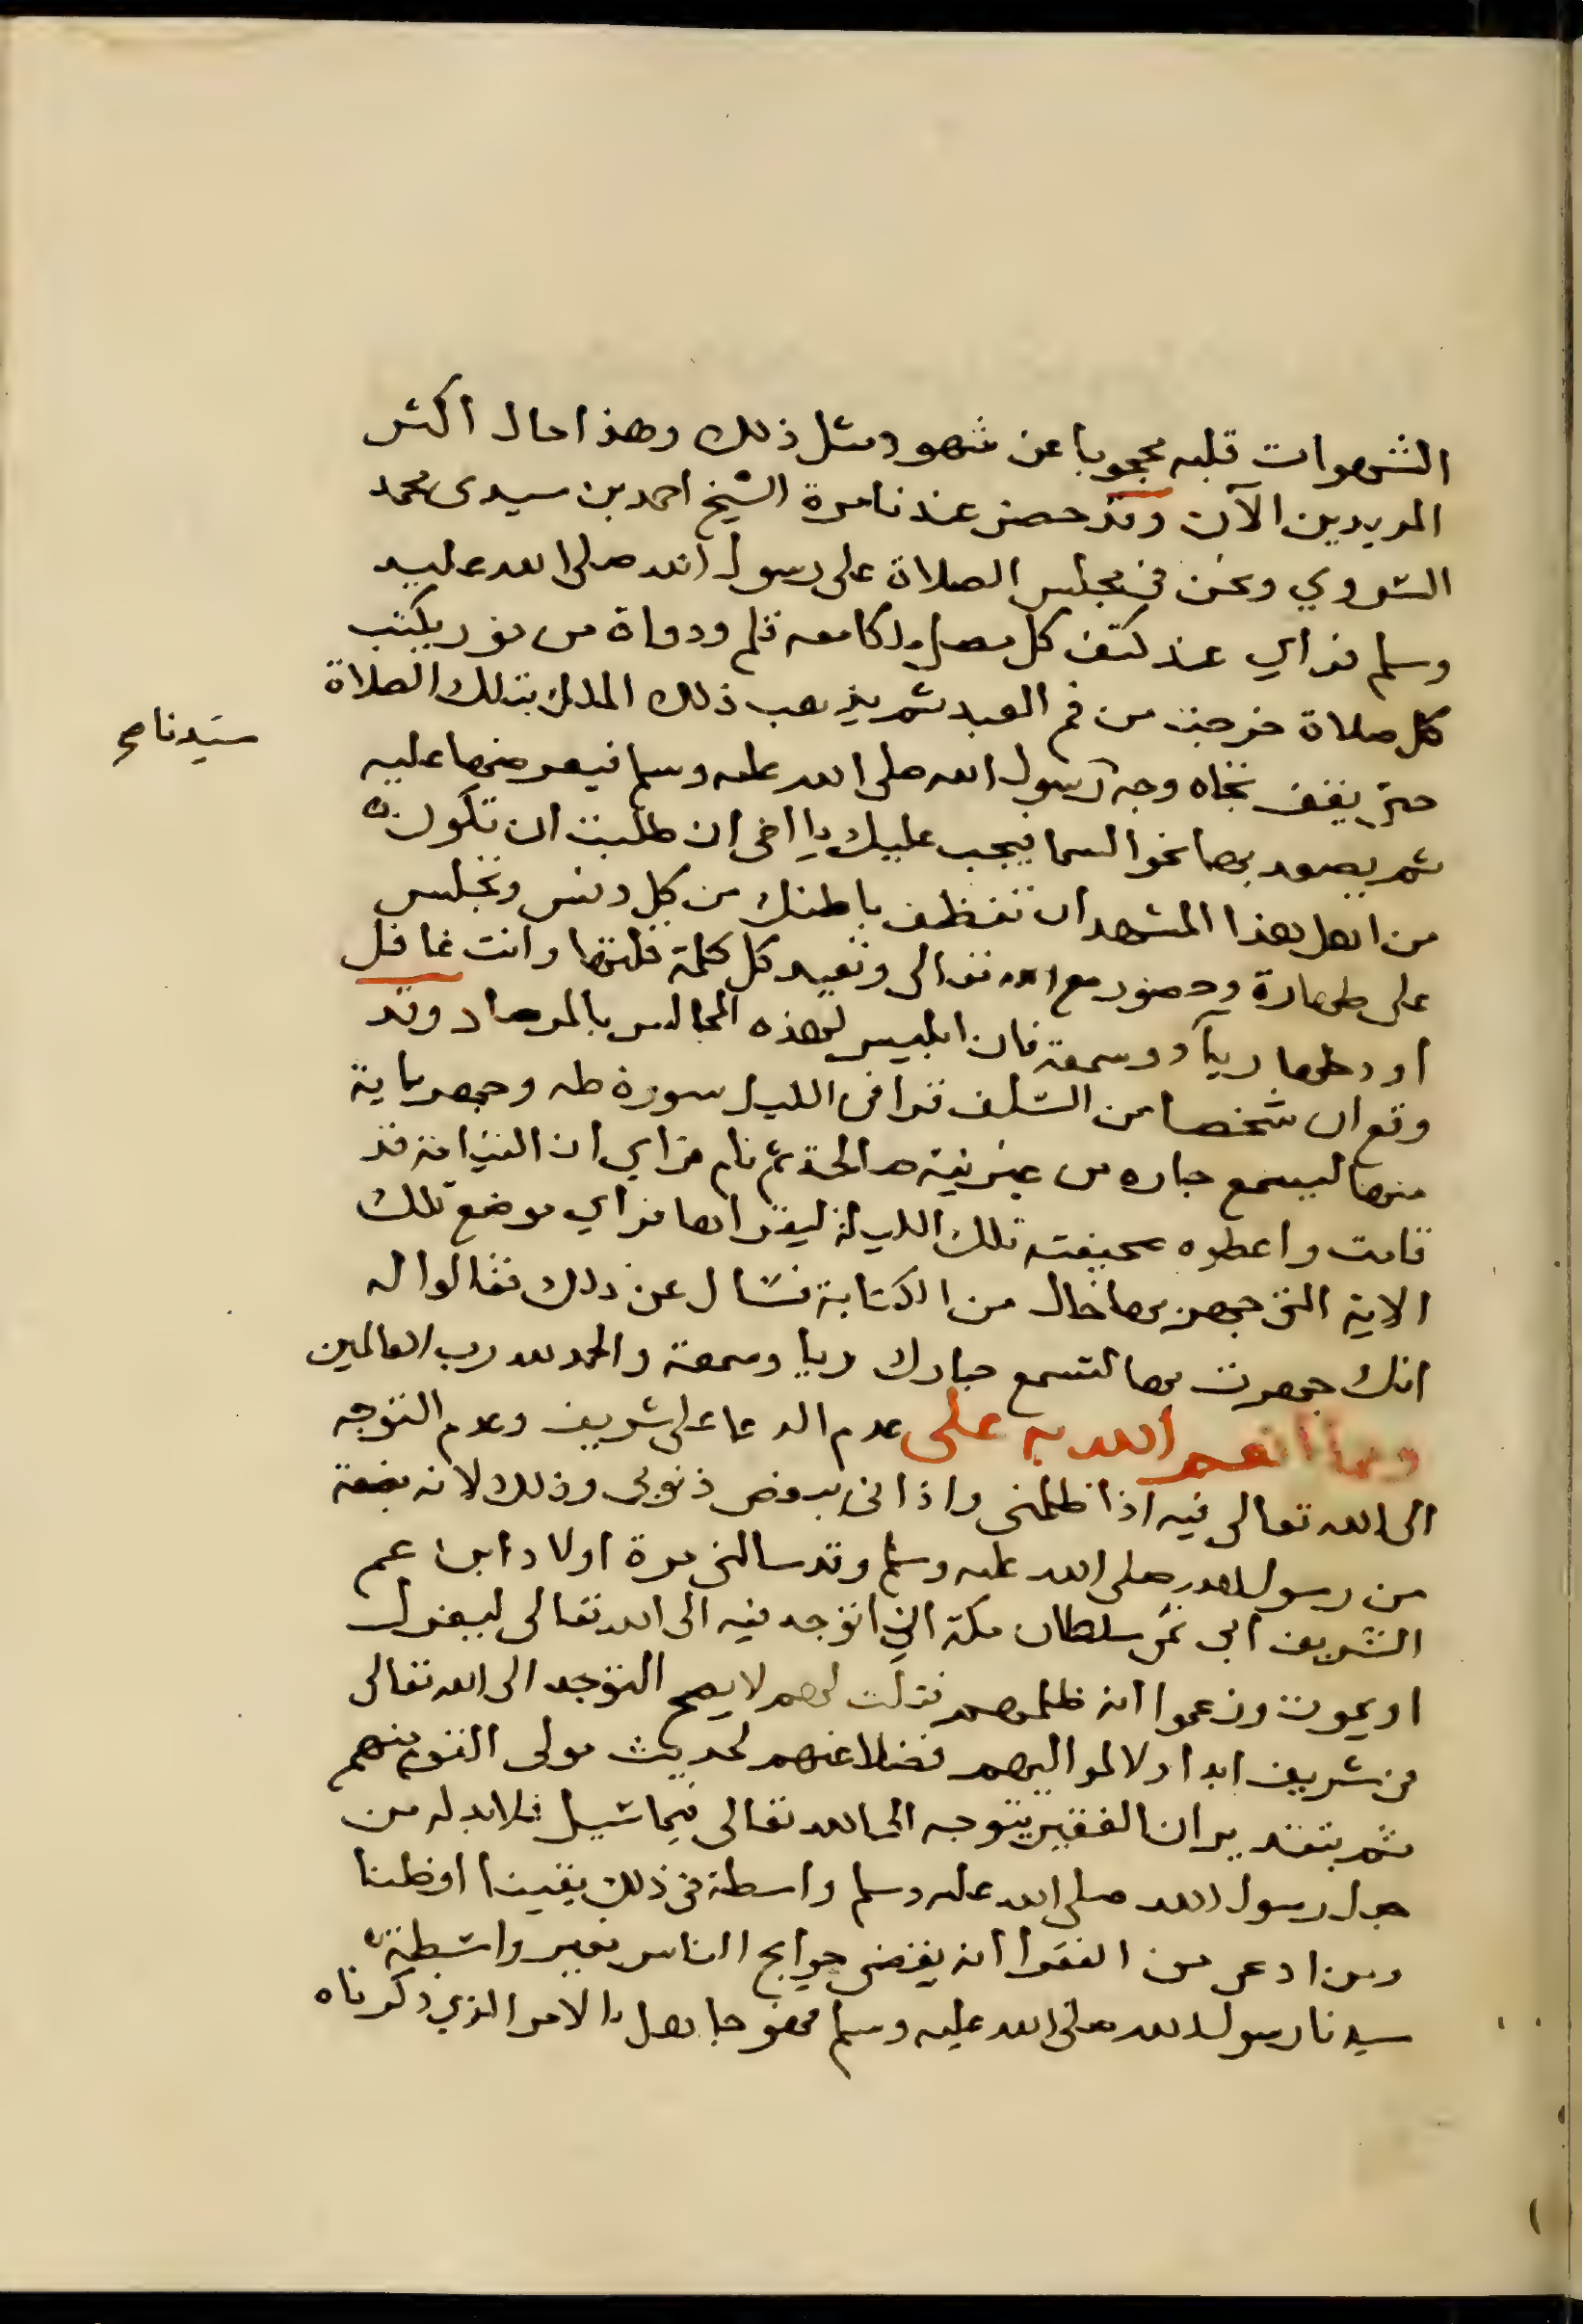 الشهوات قلبه محجوبا عن شهود مثل ذلك وهذا حال اكثر
المريدين الآن وقد حضر عندنا مرة الشيخ احمد بن سيدى محمد
الشروي ونحن في مجلس الصلاة على رسول الله صلى الله عليه
وسلم فراي عند كتف كل مصل ملكا معه قلم ودواة من نور يكتب
كل صلاة خرجت من فم العبد ثم يذهب ذلك الملك بتلك الصلاة
حتى يقف تجاه وجه رسول الله صلى الله عليه وسلم فيعرضها عليه
سيدنا صح
ثم يصعد بها نحو السما فيجب عليك يا اخى ان طلبت ان تكون
من اهل هذا المشهد ان تنظف باطنك من كل دنس وتجلس
على طهارة وحضور مع الله تعالى وتعيد كل كلمة قلتها وانت غافل
او دخلها ريآ وسمعة فان ابليس لهذه المجالس بالمرصاد وقد
وقع ان شخصا من السلف قرا في الليل سورة طه وجهر باية
منها ليسمع جاره من غير نية صالحة ثم نام فراي ان القيامة قد
قامت واعطوه صحيفته تلك الليلة ليقراها فراي موضع تلك
الاية التي جهر بها خال من الكتابة فسال عن ذلك فقالوا له
انك جهرت بها لتسمع جارك ريا وسمعة والحمد لله رب العالمين
ومما انعم الله به على عدم الدعا على شريف وعدم التوجه
الى الله تعالى فيه اذا ظلمنى واذانى ببعض ذنوبى وذلك لانه بضعة
من رسول الله صلى الله عليه وسلم وقد سالنى مرة اولاد ابن عم
الشريف ابى نمى سلطان مكة انى اتوجه فيه الى الله تعالى ليعزل
او يموت وزعموا انه ظلمهم فقلت لهم لا يصح التوجه الى الله تعالى
فى شريف ابدا ولا لمواليهم فضلا عنهم لحديث مولى القوم منهم
ثم بتقدير ان الفقير يتوجه الى الله تعالى فيما سئيل فلابد له من
جعل رسول الله صلى الله عليه وسلم واسطة فى ذلك يقينا او ظنا
ومن ادعى من الفقرا انه يقضى حوايج الناس بغير واسطة
سيدنا رسول الله صلى الله عليه وسلم فهو جاهل بالامر الذي ذكرناه